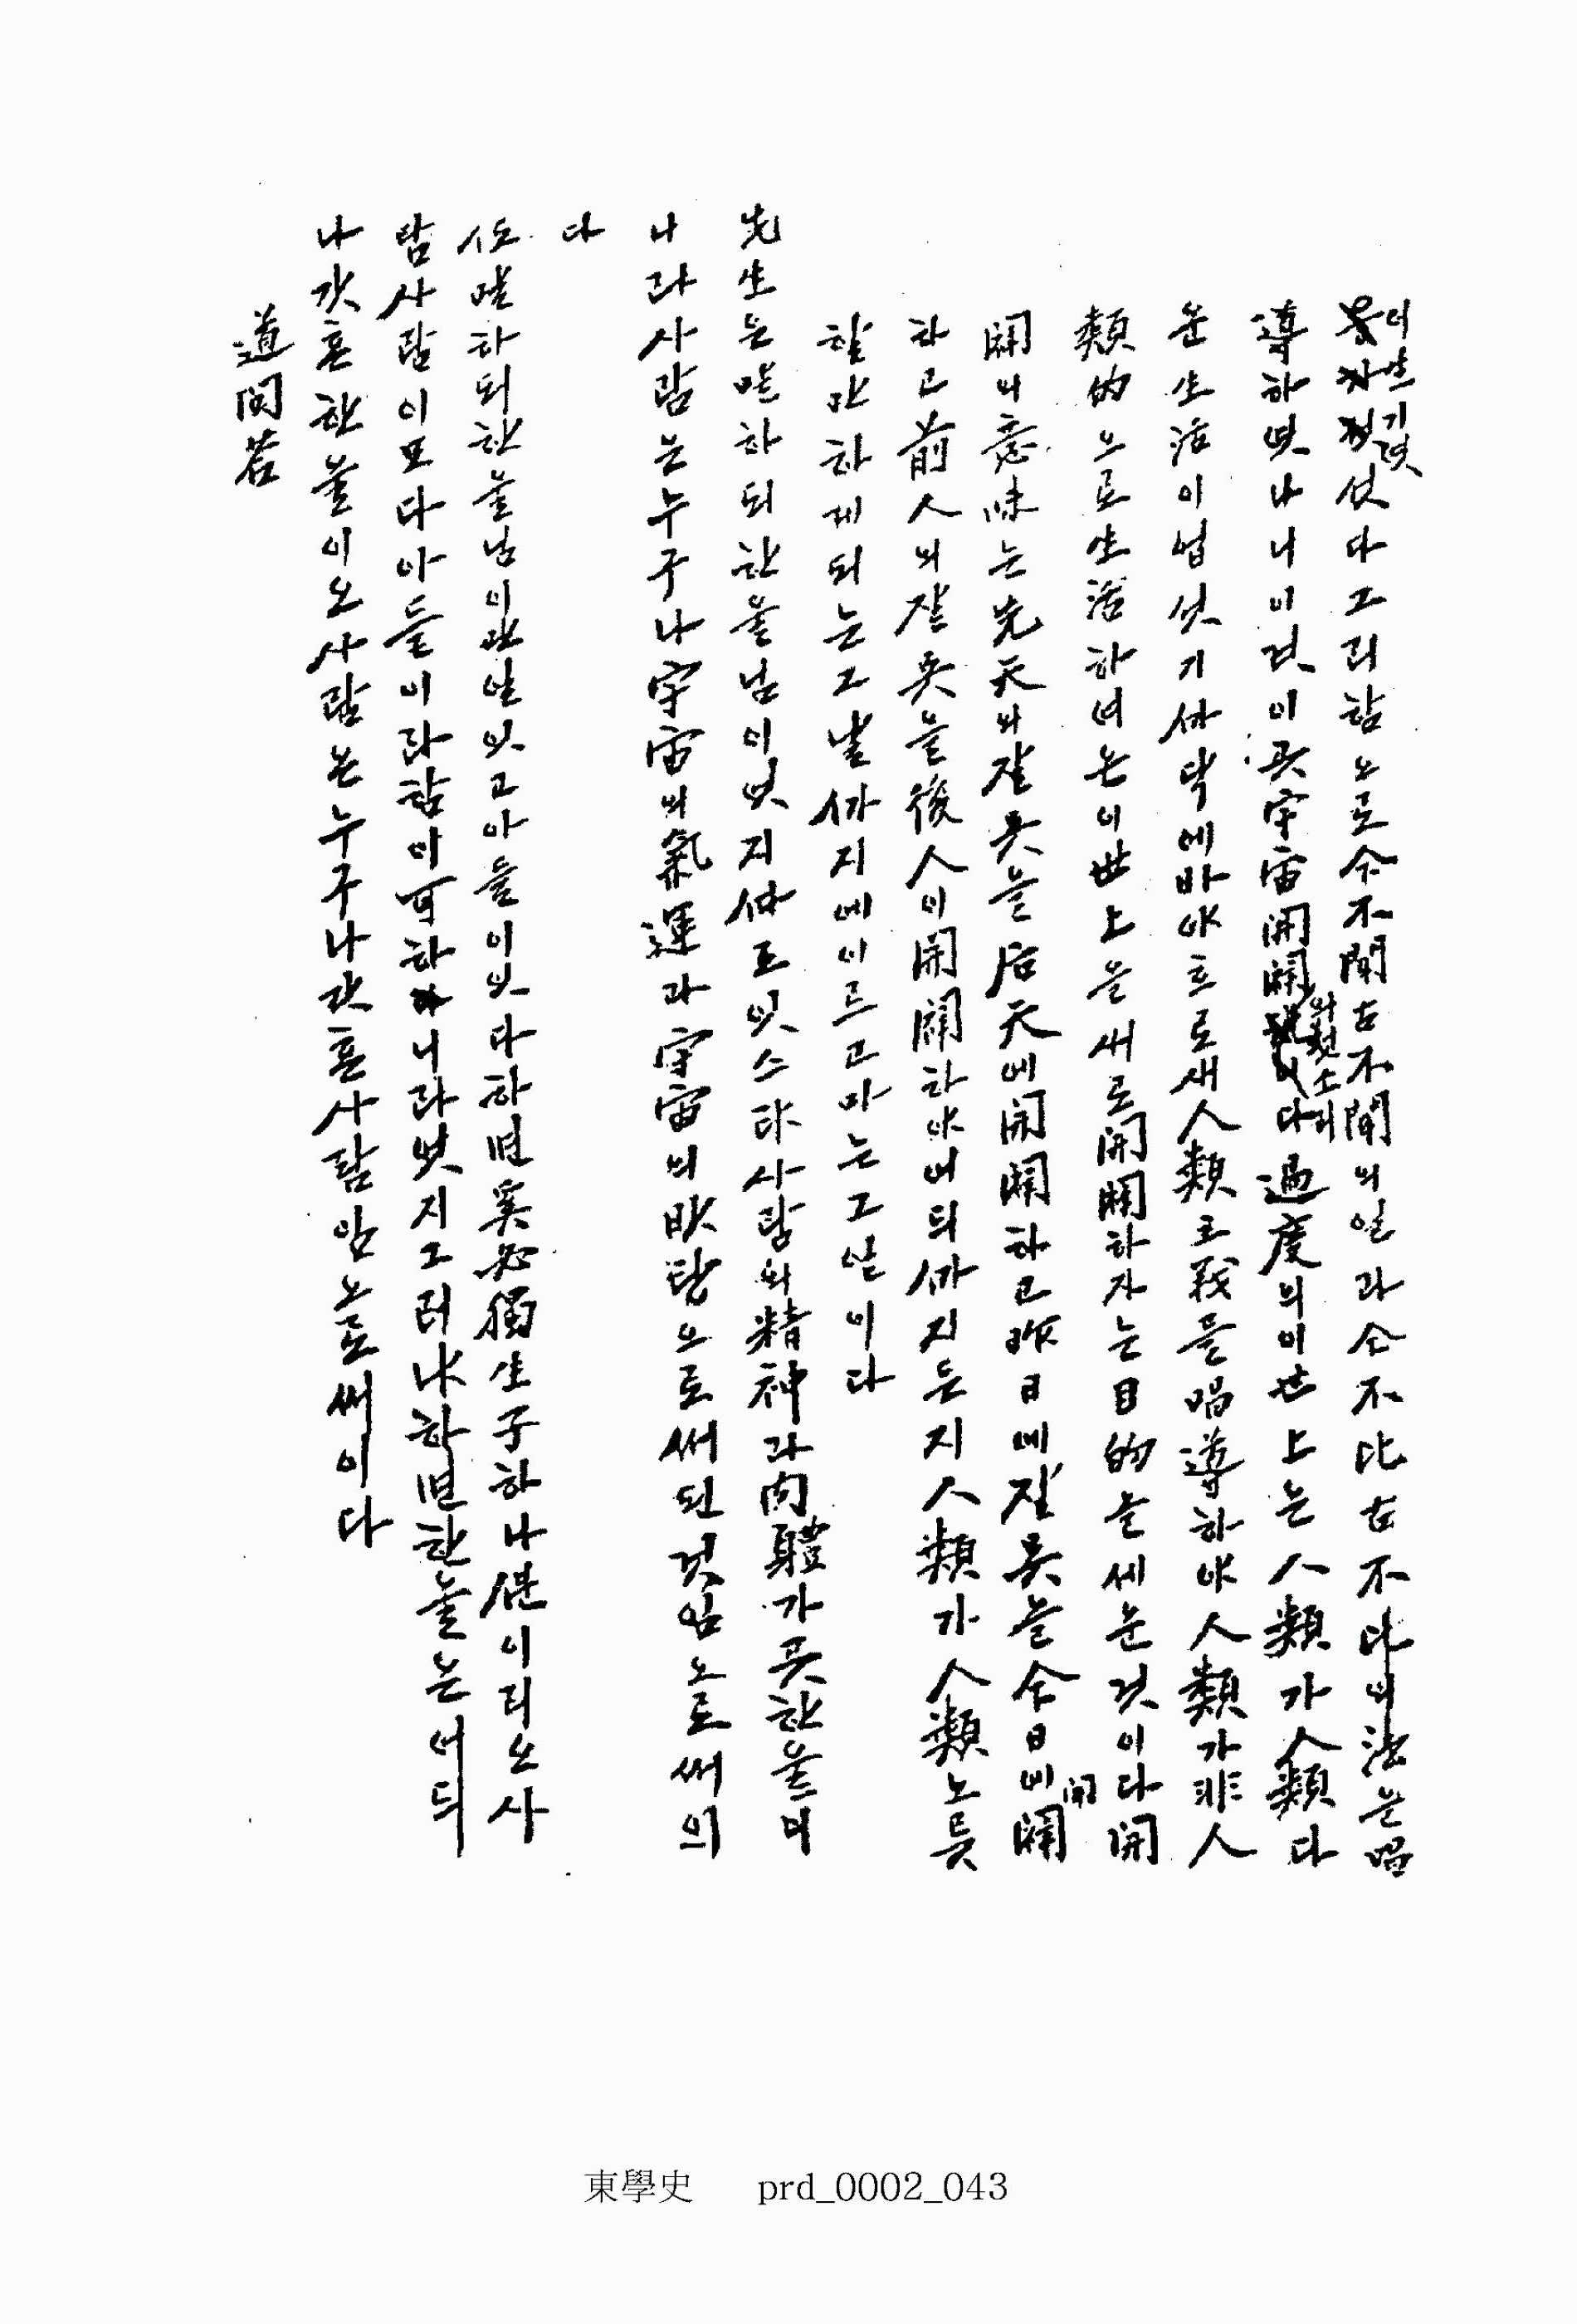 더 생기엿섯다 그리함으로 今不聞古不聞의 일과 今不比古不比의 法을 唱
導하엿나니 이것이 곳 宇宙開闢의 첫소리다 過度의 이 世上는 人類가 人類다
운 生活이 업섯기 ᄭᅡ닥에 바야흐로 새 人類主義를 唱導하야 人類가 非人
類的으로 生活하여 온 이 世上을 새로 開闢하자는 目的을 세운 것이다 開
闢의 意味는 先天의 잘못을 后天에 開闢하고 昨日에 잘못을 今日에 開闢
하고 前人의 잘못을 後人이 開闢하야 어듸ᄭᅡ지든지 人類가 人類노릇
할만하게 되는 그날ᄭᅡ지에 이르고마는 그 일이다
先生은 말하되 한울님이 잇지 ᄯᅩ 잇스랴 사람의 精神과 肉體가 곳 한울의
나라 사람은 누구나 宇宙의 氣運과 宇宙의 바탕으로써 된 것임으로써의
다
任 말하되 한울님이 만일 잇고 아들이 잇다하면 奚必獨生子 하나ᄲᅮᆫ이리오 사
람사람이 모다 아들이라 함이 可하니라 엇지 그러냐하면 한울은 어듸
나 갓흔 한울이오 사람은 누구나 갓흔 사람임으로써이다
道問答
東學史 prd_0002_043